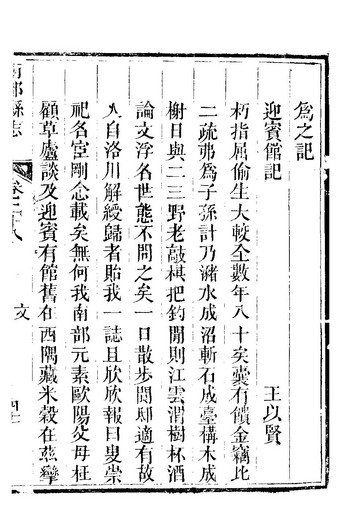 爲之記
迎賓館記
王以賢
朽指屈偷生大較全數年八十矣囊有饋金竊比
二疏弗爲子孫計乃瀦水成沼斬石成臺構木成
榭日與二三野老敲棋把釣閒則江雲渭樹杯酒
論文浮名世態不問之矣一日散步閭邸適有故
人自洛川解綬歸者貽我一誌且欣欣報曰叟崇
祀名宦剛念載矣無何我南部元素歐陽父母枉
顧草廬談及迎賓有館舊在西隅藏米穀在茲攣
南部縣志
卷二十八
文